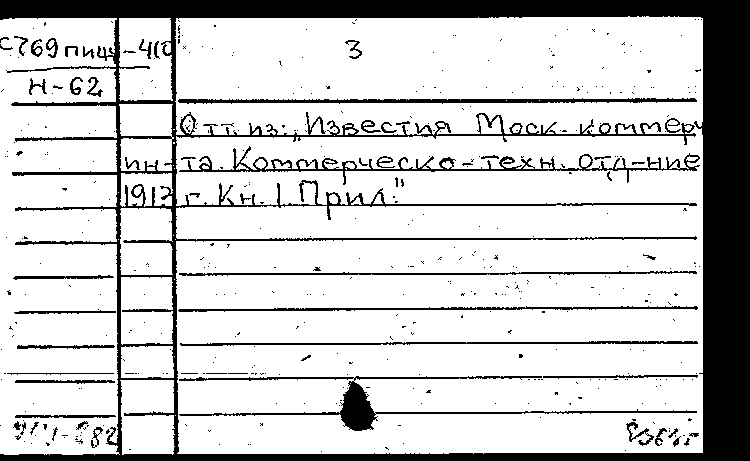 С769пищ-410
3
Н-62
Отт. из: „Известия Моск. коммерч
ин-та. Коммерческо-техн. отд-ние
1917 г. Кн. 1. Прил."